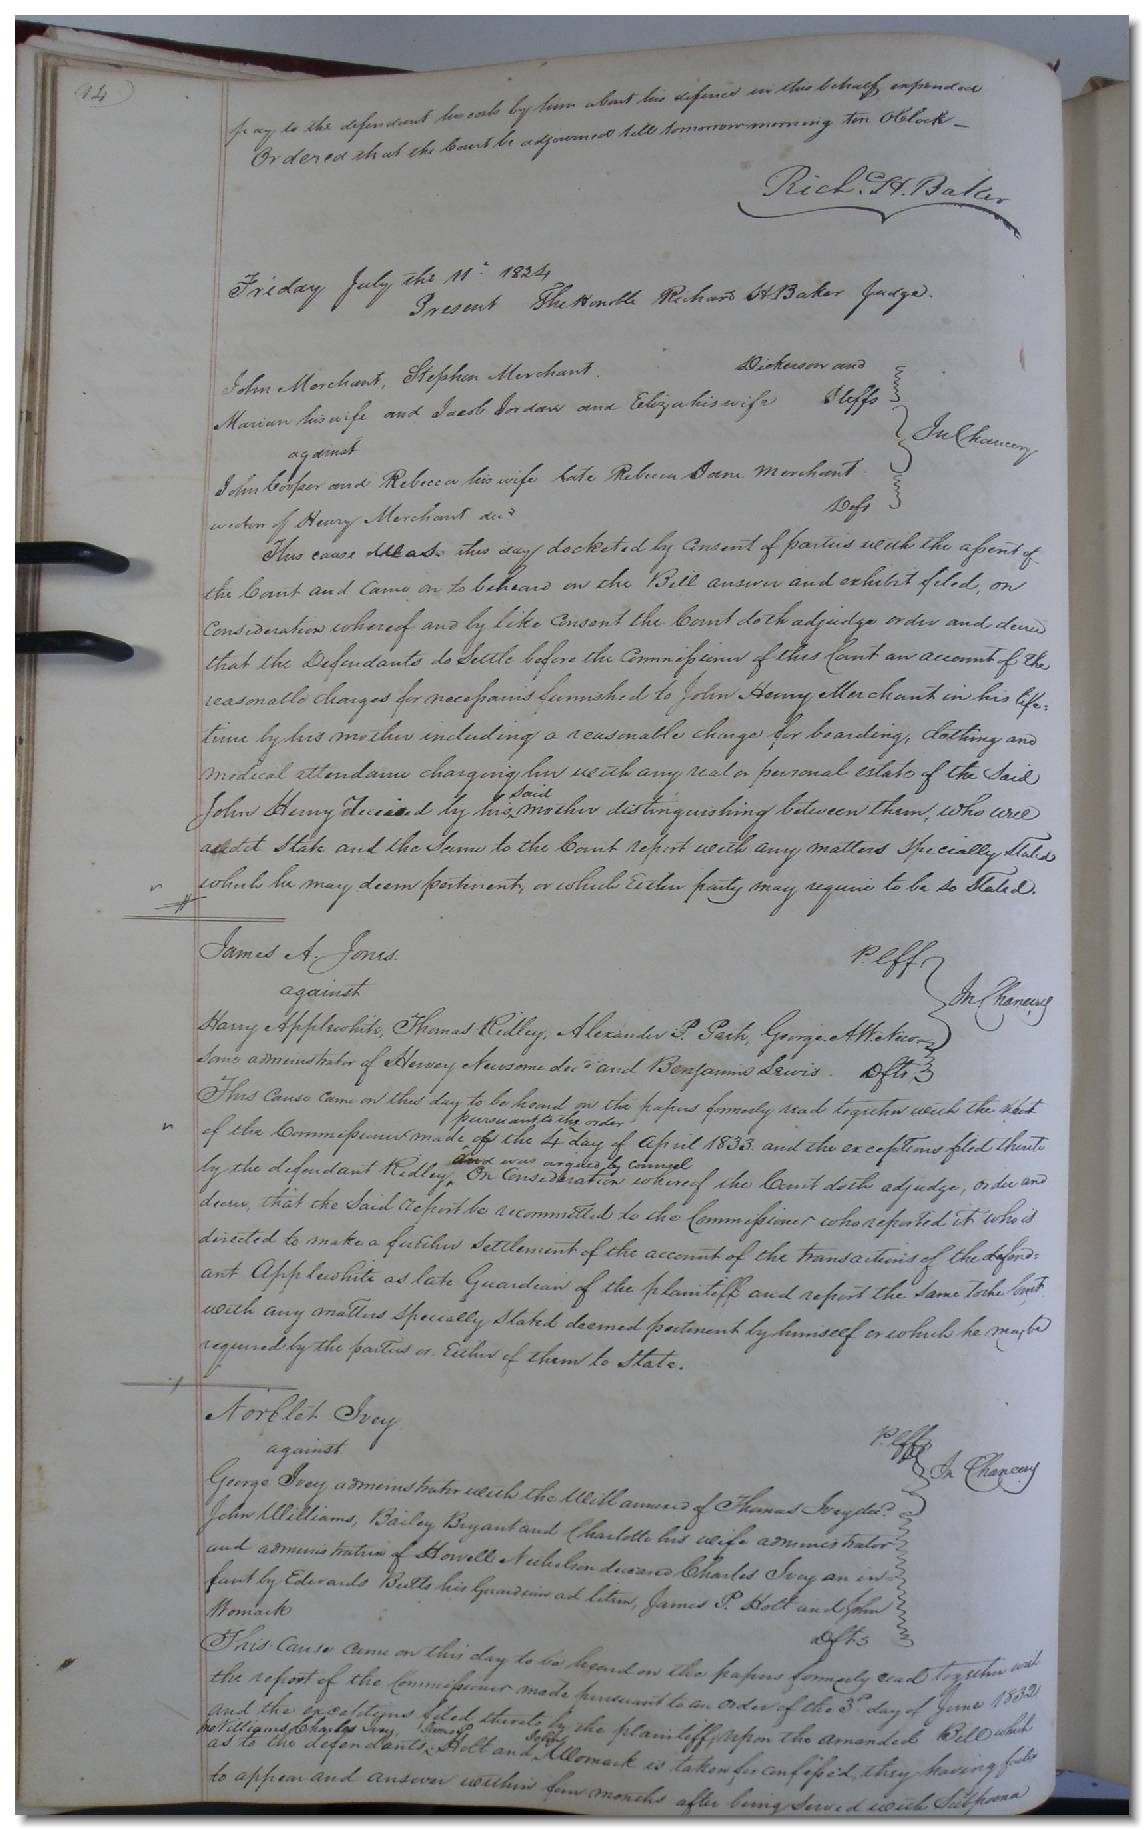 94
pay to the defendant his costs by him about his defence in this behalf expended
Ordered that the Court be adjourned till tomorrow morning ten OClock—
Richd. H. Baker
Friday July the 11th 1834
Present The Honble Richard H Baker Judge.
John Merchant, Stephen Merchant. Dickerson and
Marian his wife and Jacob Jordan and Eliza his wife Plffs
against
In Chancery
John Cooper and Rebecca his wife late Rebecca Jane Merchant
of Henry Merchant decd Defs
This cause was this day docketed by consent of parties with the assent of
the Court and came on to be heard on the Bill answer and exhibit filed, on
Consideration whereof and by like Consent the Court doth adjudge order and decree
that the Defendants do Settle before the Commissioner of this Court an account of the
reasonable charges for necessaries furnished to John Henry Merchant in his life=
time by his mother including a reasonable charge for boarding, clothing and
medical attendance charging her with any real or personal estate of the Said
John Henry by his said mother distinguishing between them, who will
audit State and the Same to the Court report with any matters Specially Stated
which he may deem pertinent, or which Either party may require to be so Stated.
James A. Jones. Plff
against
In Chancery
Harry Applewhite, Thomas Ridley, Alexander P. George A W. New-
some administrator of Hervey Newsome decd and Benjamin Lewis. Dfts
This Cause came on this day to be heard on the papers formerly read together with the
pursuant to the order
of the Commissioner made of the 4th day of April 1833 and the exceptions filed thereto
and was argued by counsel
by the defendant Ridley, On Consideration whereof the Court doth adjudge, order and
decree, that the Said Report be recommitted to the Commissioner who reported it who is
directed to make a further Settlement of the account of the transactions of the defend=
ant Applewhite as late Guardian of the plaintiff and report the Same to the Court
with any matters Specially Stated deemed pertinent by himself or which he may be
required by the parties or Either of them to State.
Norflet Ivey Plff
against
In Chancery
George Ivey administrator with the Will annexed of Thomas Ivey decd.
John Williams, Bailey Bryant and Charlotte his wife administrator
and administratrix of Howell Nicholson deceased Charles Ivey an in=
fant by Edwards Butts his Guardian ad litem, James P. Holt and John
Womack Dfts
This Cause came on this day to be heard on the papers formerly read together with
the report of the Commissioner made pursuant to an order of the 3d day of June 1832
and the exceptions filed thereto by the plaintiff, upon the amended Bill which
Williams, Charles Ivey, James P. John
as to the defendants Holt and Womack is taken for confessed, they having failed
to appear and answer within four months after being Served with Subpoena